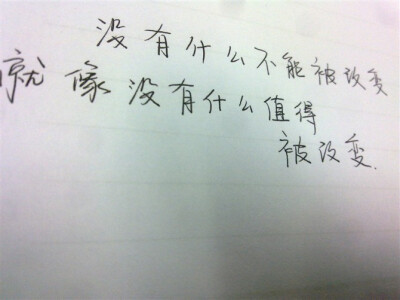 没有什么不能被改变
就像没有什么值得
被改变.